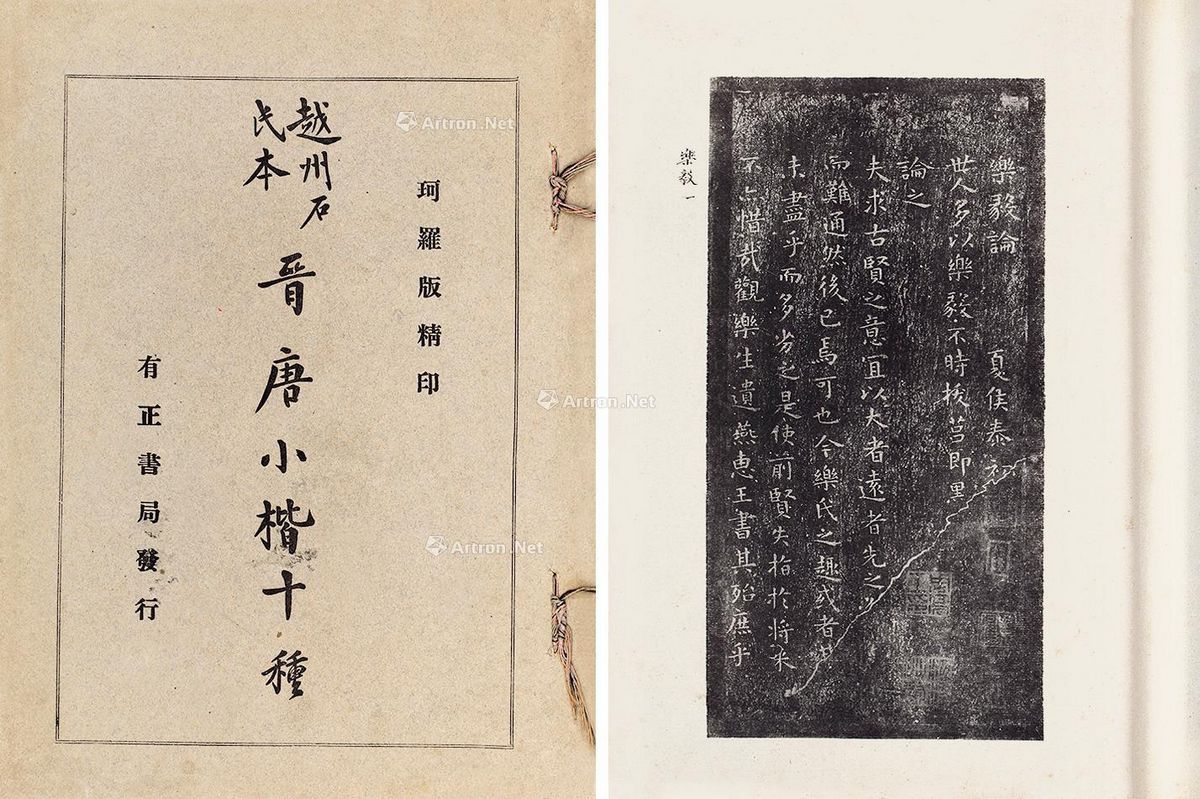 珂羅版精印
越州石
氏本
晋唐小楷十種
有正書局發行
樂毅論 夏侯泰初
世人多以樂毅不時拔莒即墨
論之
夫求古賢之意宜以大者遠者先之
而難通然後已焉可也今樂氏之趣或者
未盡乎而多劣之是使前賢失指於將來
不亦惜哉觀樂生遺燕惠王書其殆庶乎
樂毅一
Artron.Net
Artron.Net
Artron.Net